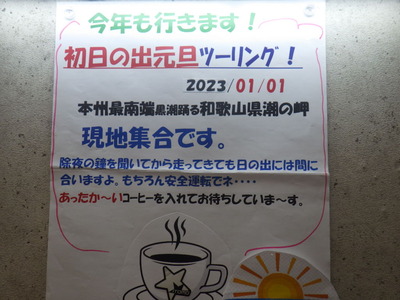 今年も行きます!
初日の出元旦ツーリング!
2023/01/01
本州最南端黒潮踊る和歌山県潮の岬
現地集合です。
除夜の鐘を聞いてから走ってきても日の出には間に
合いますよ。もちろん安全運転でネ・・・・
あったか〜いコーヒーを入れてお待ちしていま〜す。